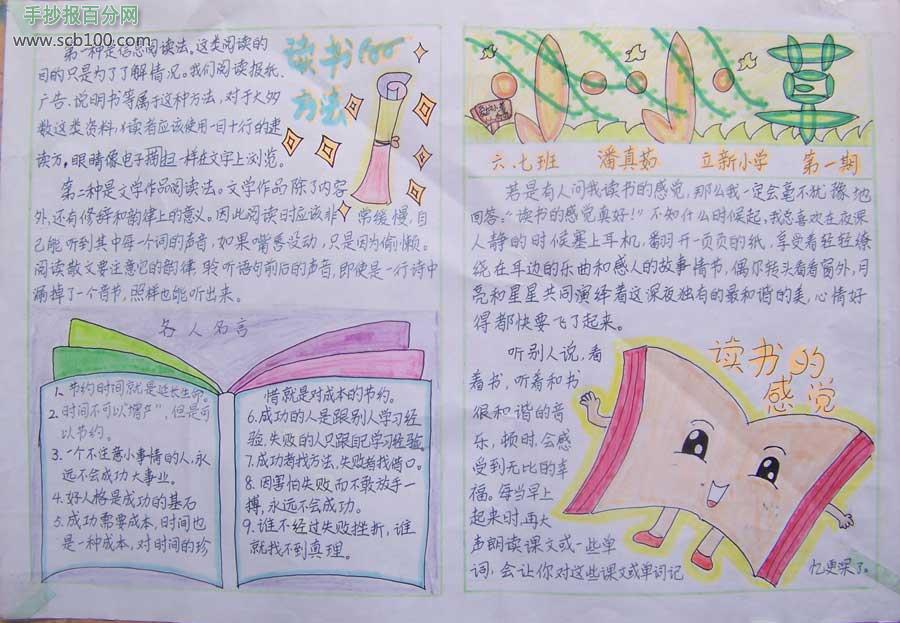 手抄报百分网
www.scb100.com
第一种是信息阅读法。这类阅读的
目的只是为了了解情况。我们阅读报纸、
广告、说明书等属于这种方法,对于大多
数这类资料,读者应该使用一目十行的速
读方,眼睛像电子扫描一样在文字上浏览。
读书的
方法
第二种是文学作品阅读法。文学作品除了内容
外,还有修辞和韵律上的意义。因此阅读时应该非常缓慢,自
己能听到其中每一个词的声音,如果嘴唇没动,只是因为偷懒。
阅读散文要注意它的韵律,聆听语句前后的声音,即使是一行诗中
漏掉了一个音节,照样也能听出来。
名人名言
1、节约时间就是延长生命。
2、时间不可以增产,但是可
以节约。
3、一个不注意小事情的人,永
远不会成功大事业。
4、好人格是成功的基石
5、成功需要成本,时间也
是一种成本,对时间的珍
惜就是对成本的节约。
6、成功的人是跟别人学习经
验,失败的人只跟自己学习经验
7、成功者找方法,失败者找借口。
8、因害怕失败而不敢放手一
搏,永远不会成功。
9、谁不经过失败挫折,谁
就找不到真理。
六.七班 潘真茹 立新小学 第一期
若是有人问我读书的感觉,那么我一定会毫不犹豫地
回答:“读书的感觉真好!”不知什么时候起,我总喜欢在夜深
人静的时候塞上耳机,翻开一页页的纸,享受着轻轻缭
绕在耳边的乐曲和感人的故事情节,偶尔转头看看窗外,月
亮和星星共同演绎着这深夜独有的最和谐的美,心情好
得都快要飞了起来。
读书的
感觉
听别人说,看
着书,听着和书
很和谐的音
乐,顿时会感
受到无比的幸
福。每当早上
起来时,再大
声朗读课文或一些单
词,会让你对这些课文或单词记
忆更深了。